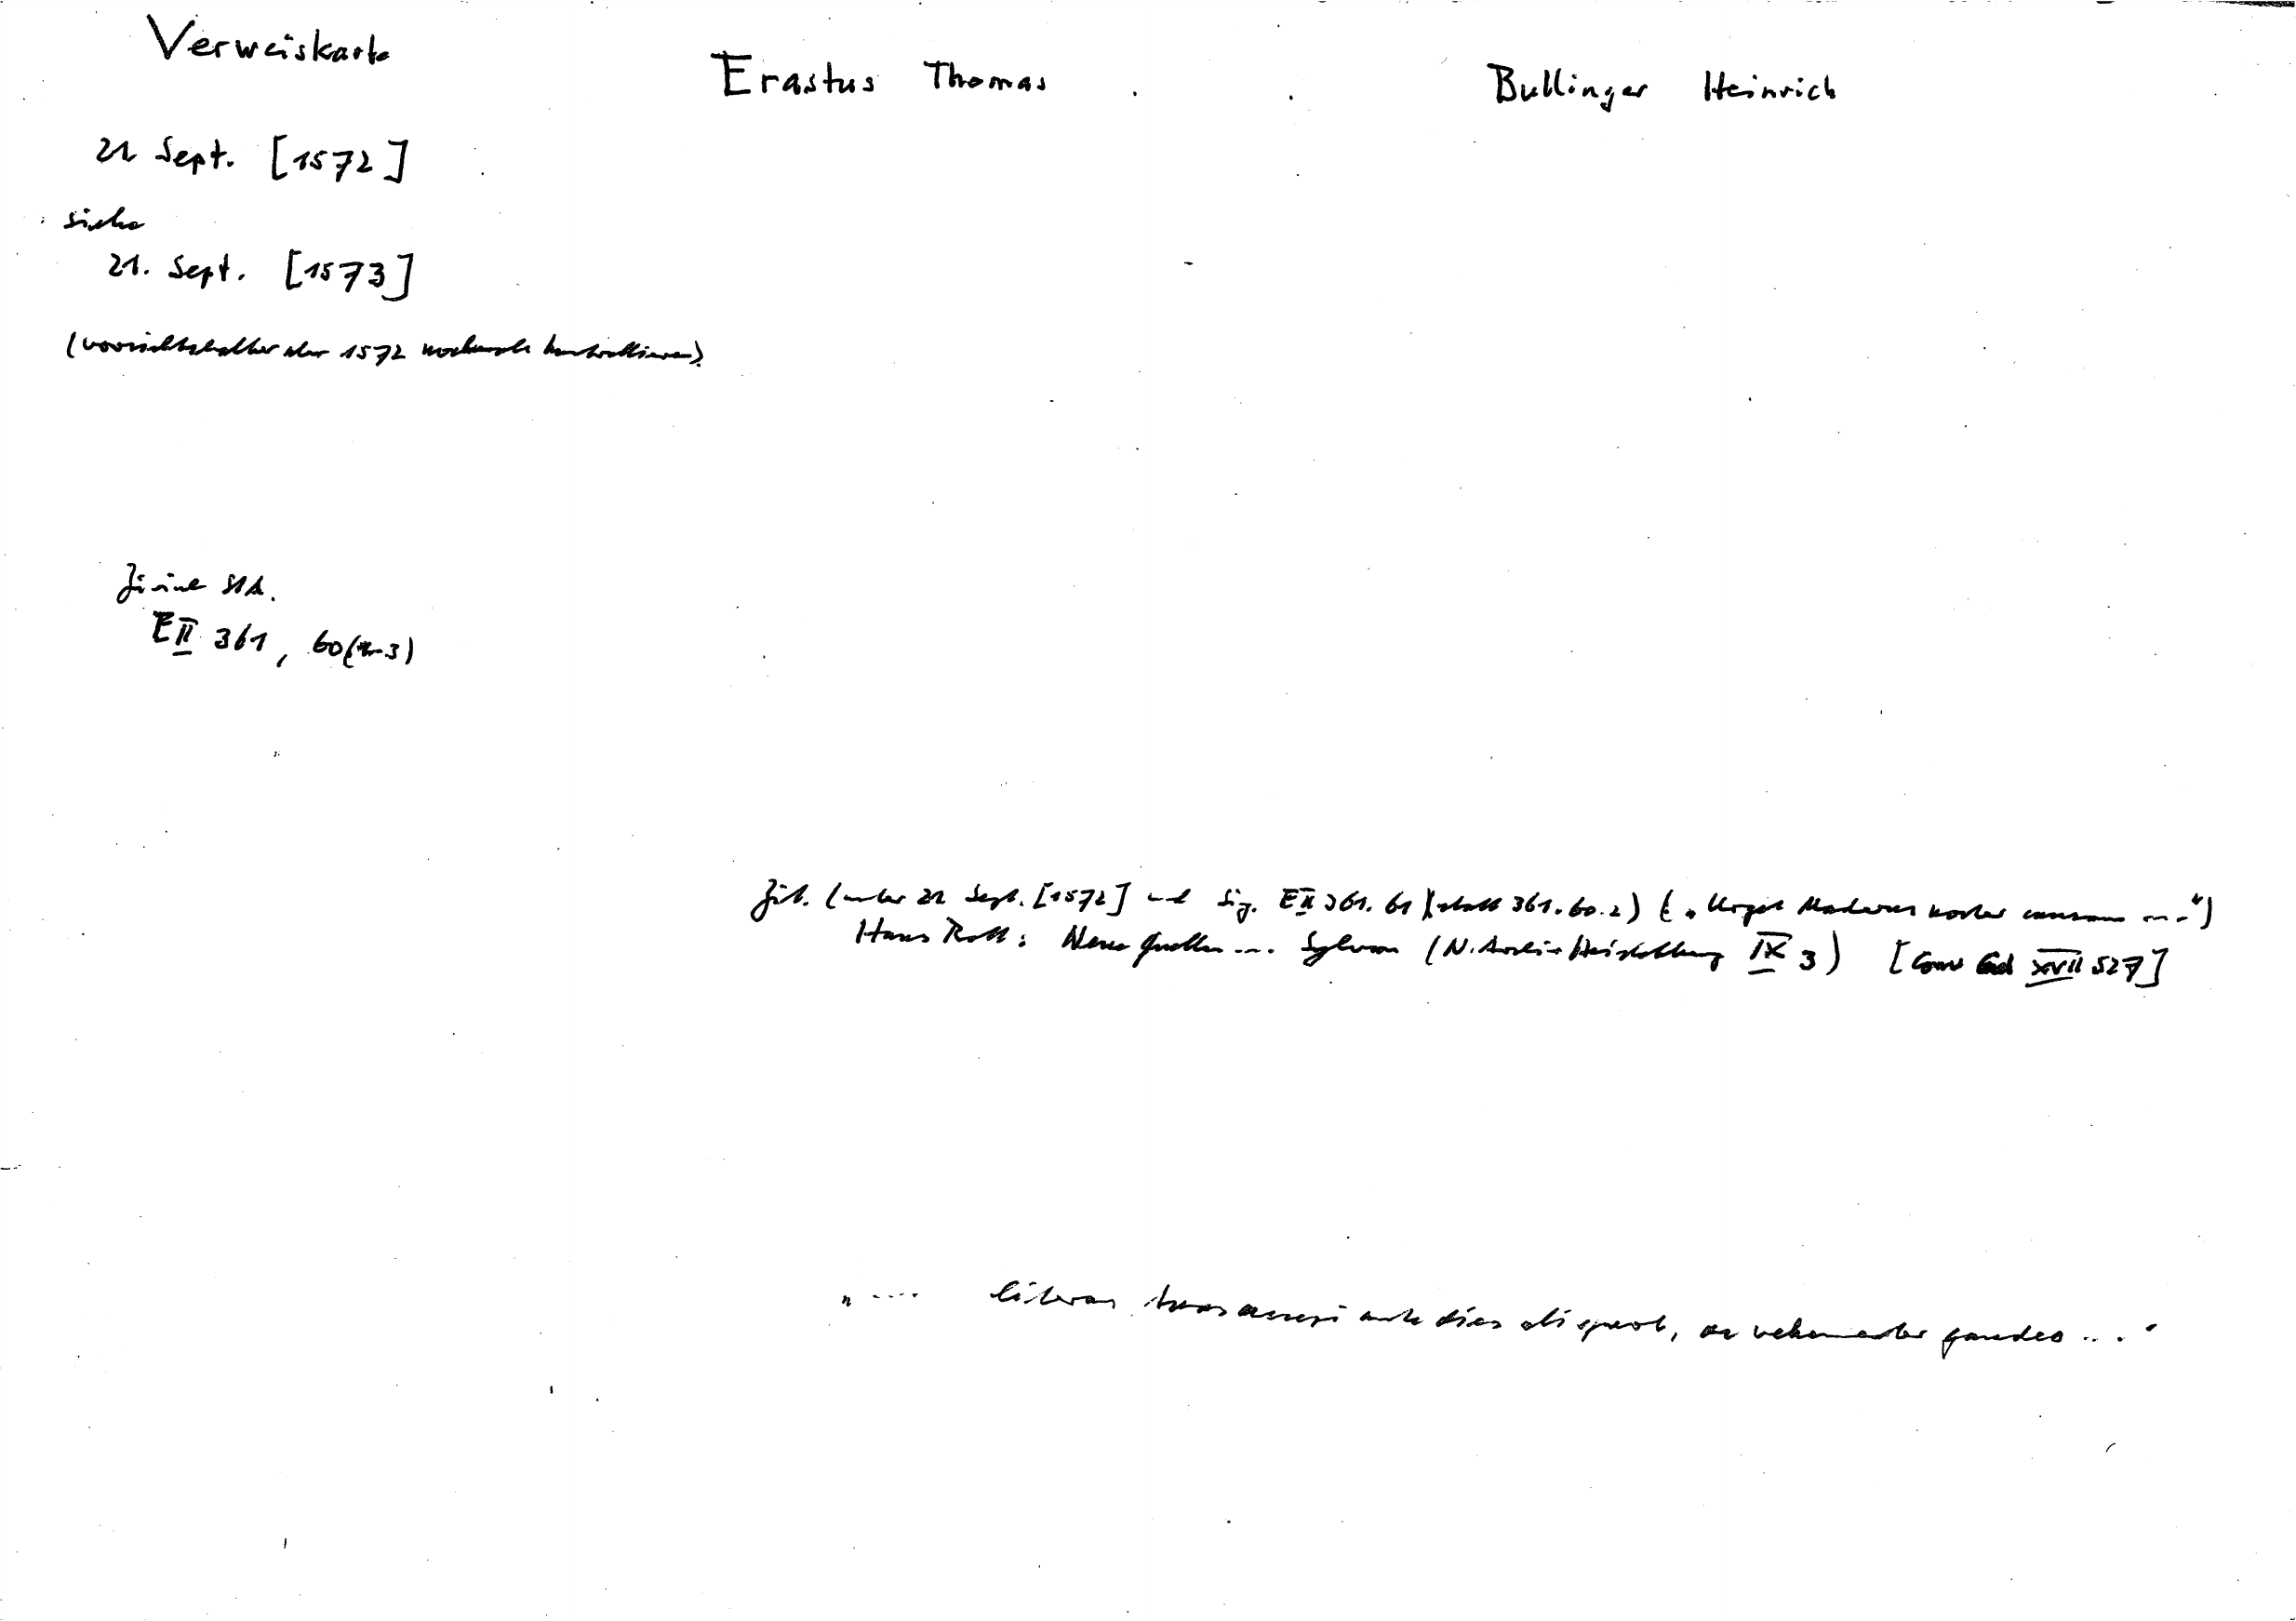 Verweiskarte
Erastus Thomas
Bullinger Heinrich
21 Sept. [1572]
siehe
21. Sept. [1573]
(vorsichtshalber aber 1572 nochmals kontrollieren)
Zürich StA.
EII 361, 60(
Zit. (unter 21 Sept. [1572] und Sig. EII 361. 61)(statt 361. 60. 2) („ Urget noster causam ...")
Hans Rott: Neue Quellen ... Sylvan (N. Archiv Heidelberg IX 3) [XVII 527]
" .... literas tuas accepi ante dies aliquot, ac vehementer gaudeo ... "